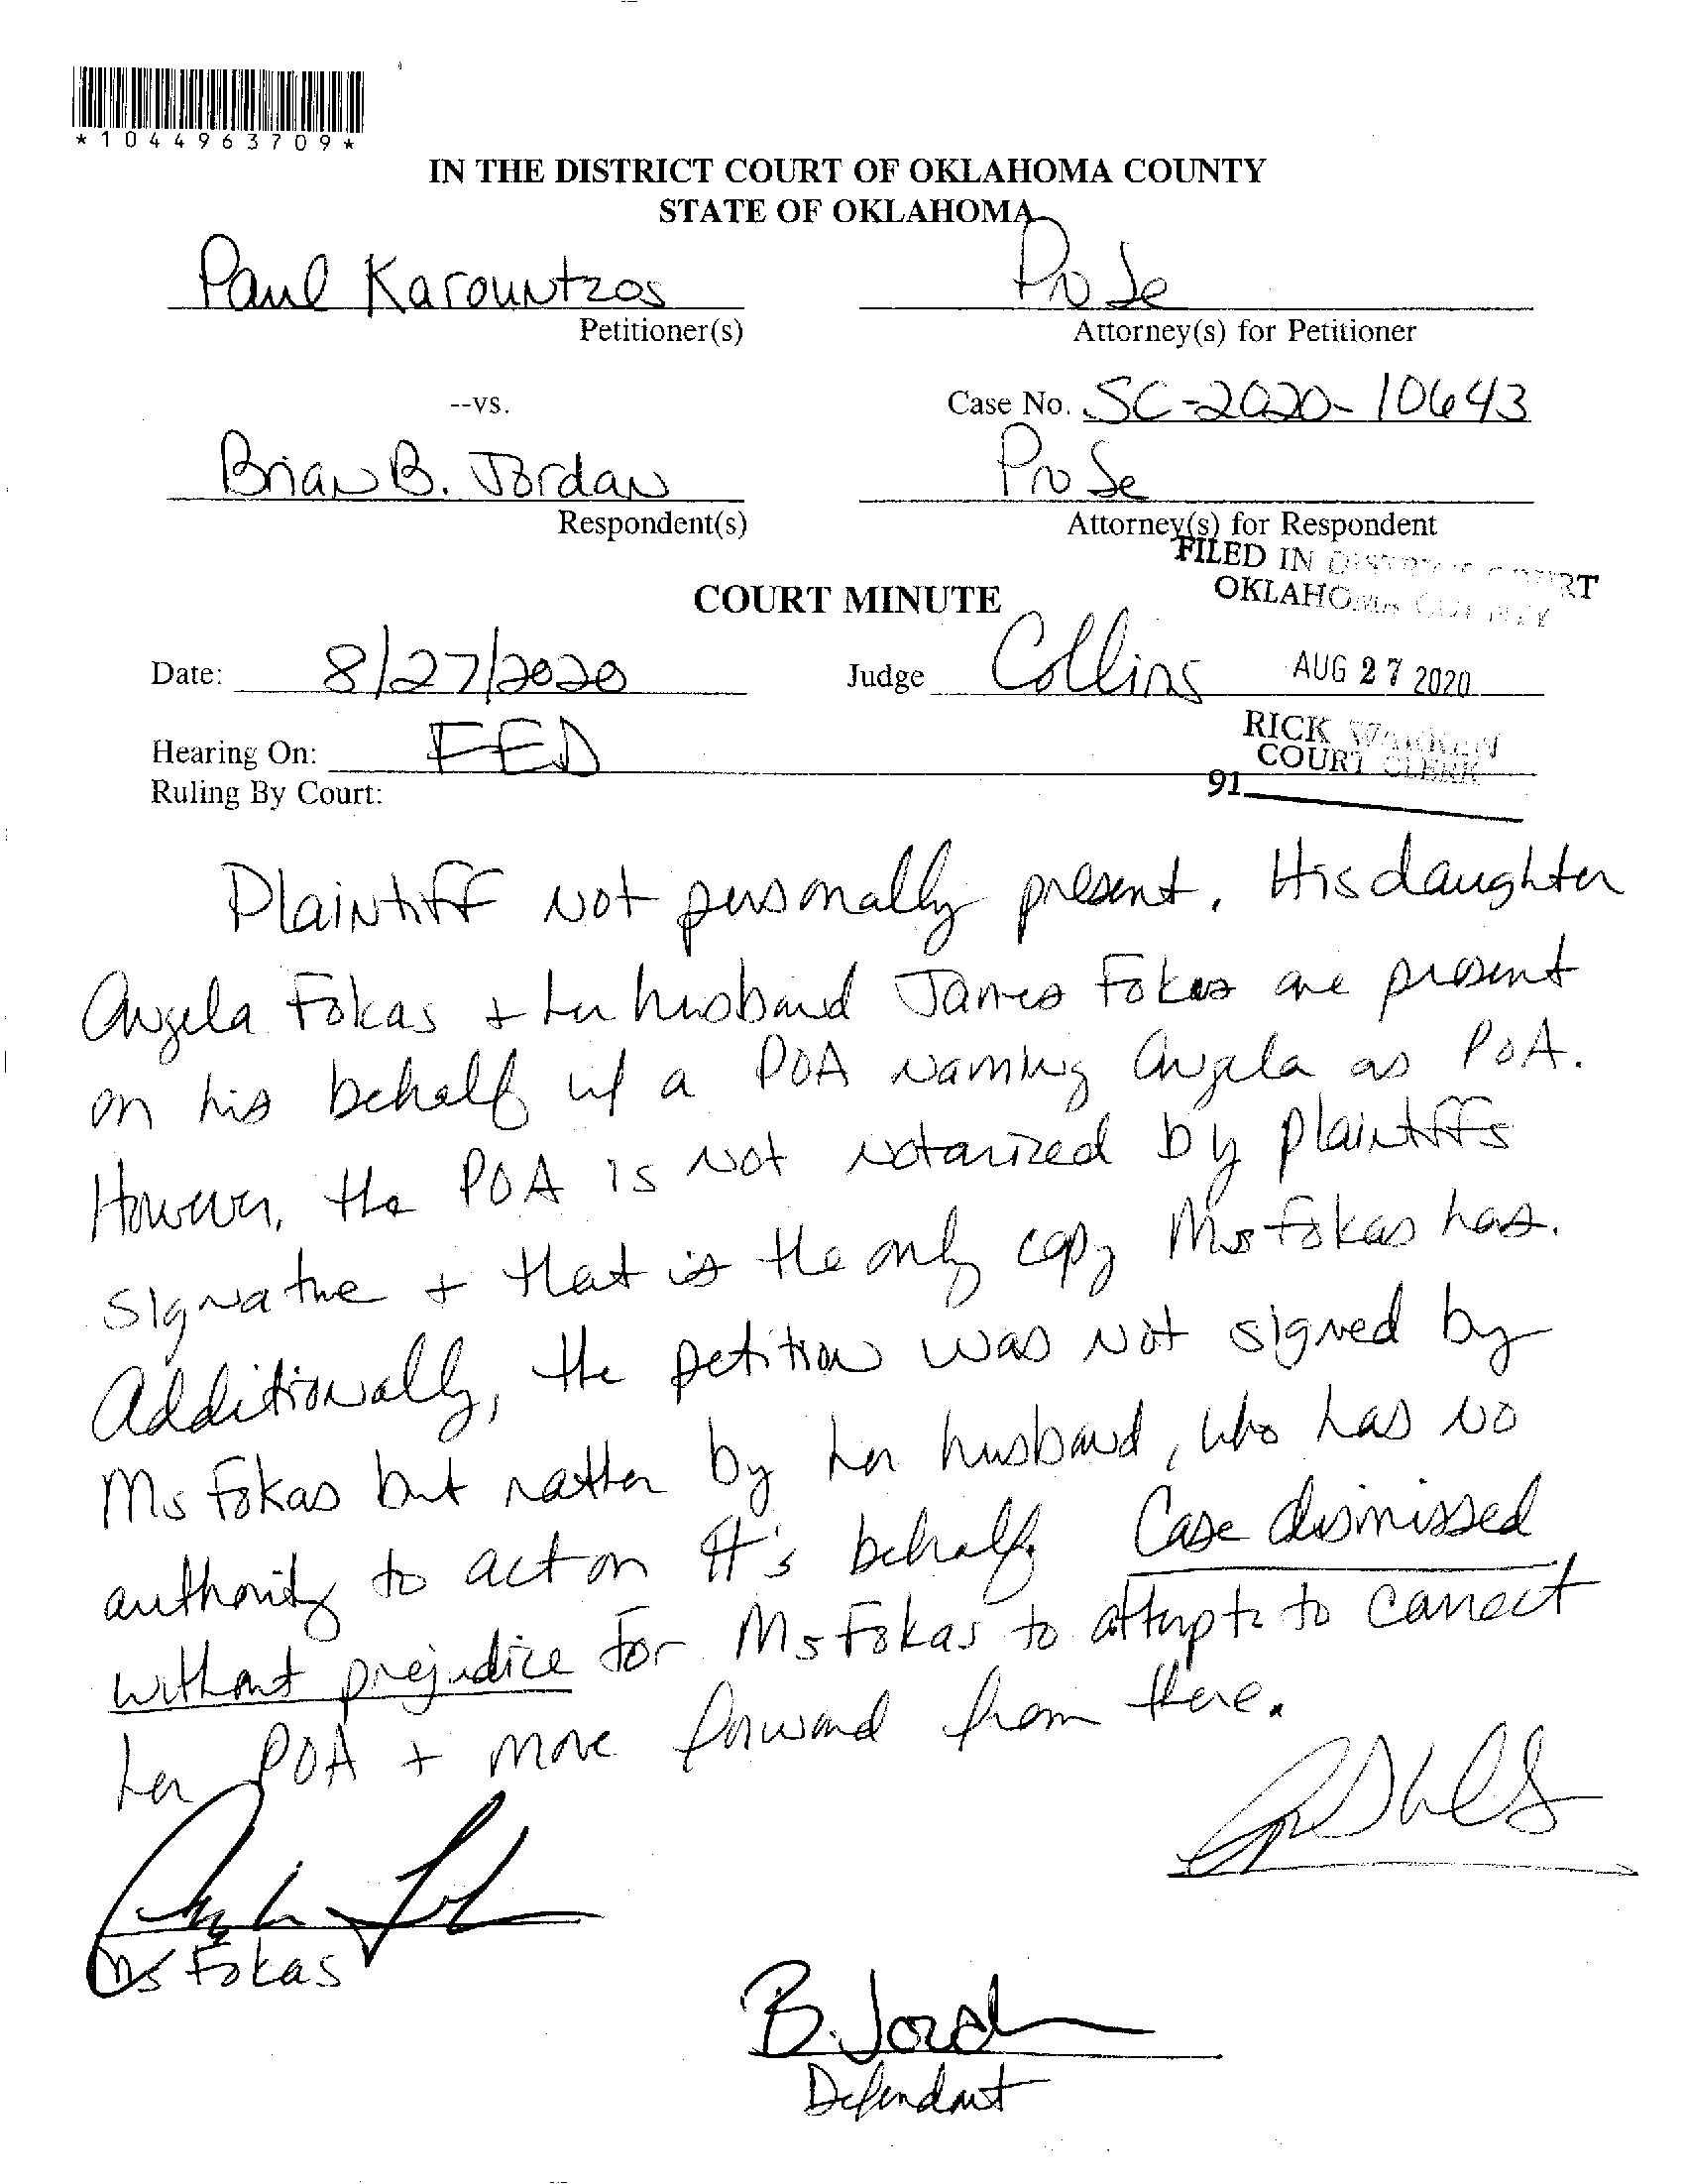 *1044963709*
IN THE DISTRICT COURT OF OKLAHOMA COUNTY
STATE OF OKLAHOMA
Paul Karountzos Pro Se
Petitioner(s) Attorney(s) for Petitioner
--vs. Case No. SC-2020-10643
Brian B. Jordan Pro Se
Respondent(s) Attorney(s) for Respondent
FILED IN DISTRICT COURT
OKLAHOMA COUNTY
COURT MINUTE
Date: 8/27/2020 Judge Collins AUG 27 2020
Hearing On: FED RICK WARREN
COURT CLERK
Ruling By Court: 91
Plaintiff not personally present. His daughter
Angela Fokas + her husband James Fokas are present
on his behalf w/ a POA naming Angela as POA.
However, the POA is not notarized by plaintiffs
signature + that is the only copy Ms Fokas has.
Additionally, the petition was not signed by
Ms Fokas but rather by her husband, who has no
authority to act on π's behalf. Case dismissed
without prejudice for Ms Fokas to attempt to correct
her POA + move forward from there.
Ms Fokas
B. Jordan
Defendant